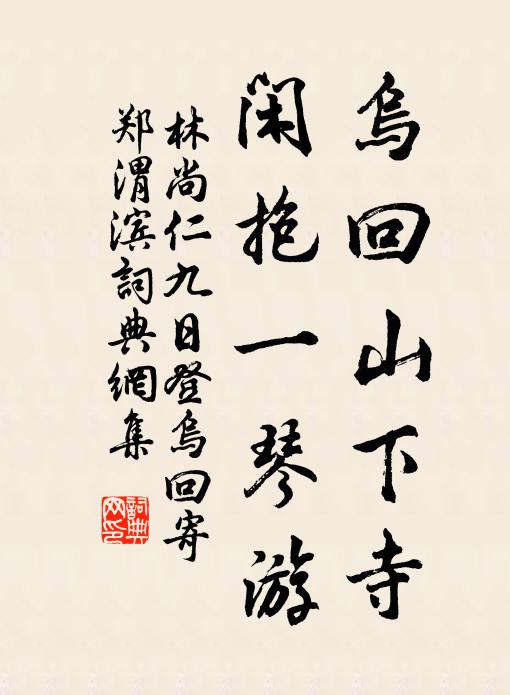 烏回山下寺
闲抱一琴游
林尚仁九日登烏回寄
郑渭滨詞典網集
詞典
网印